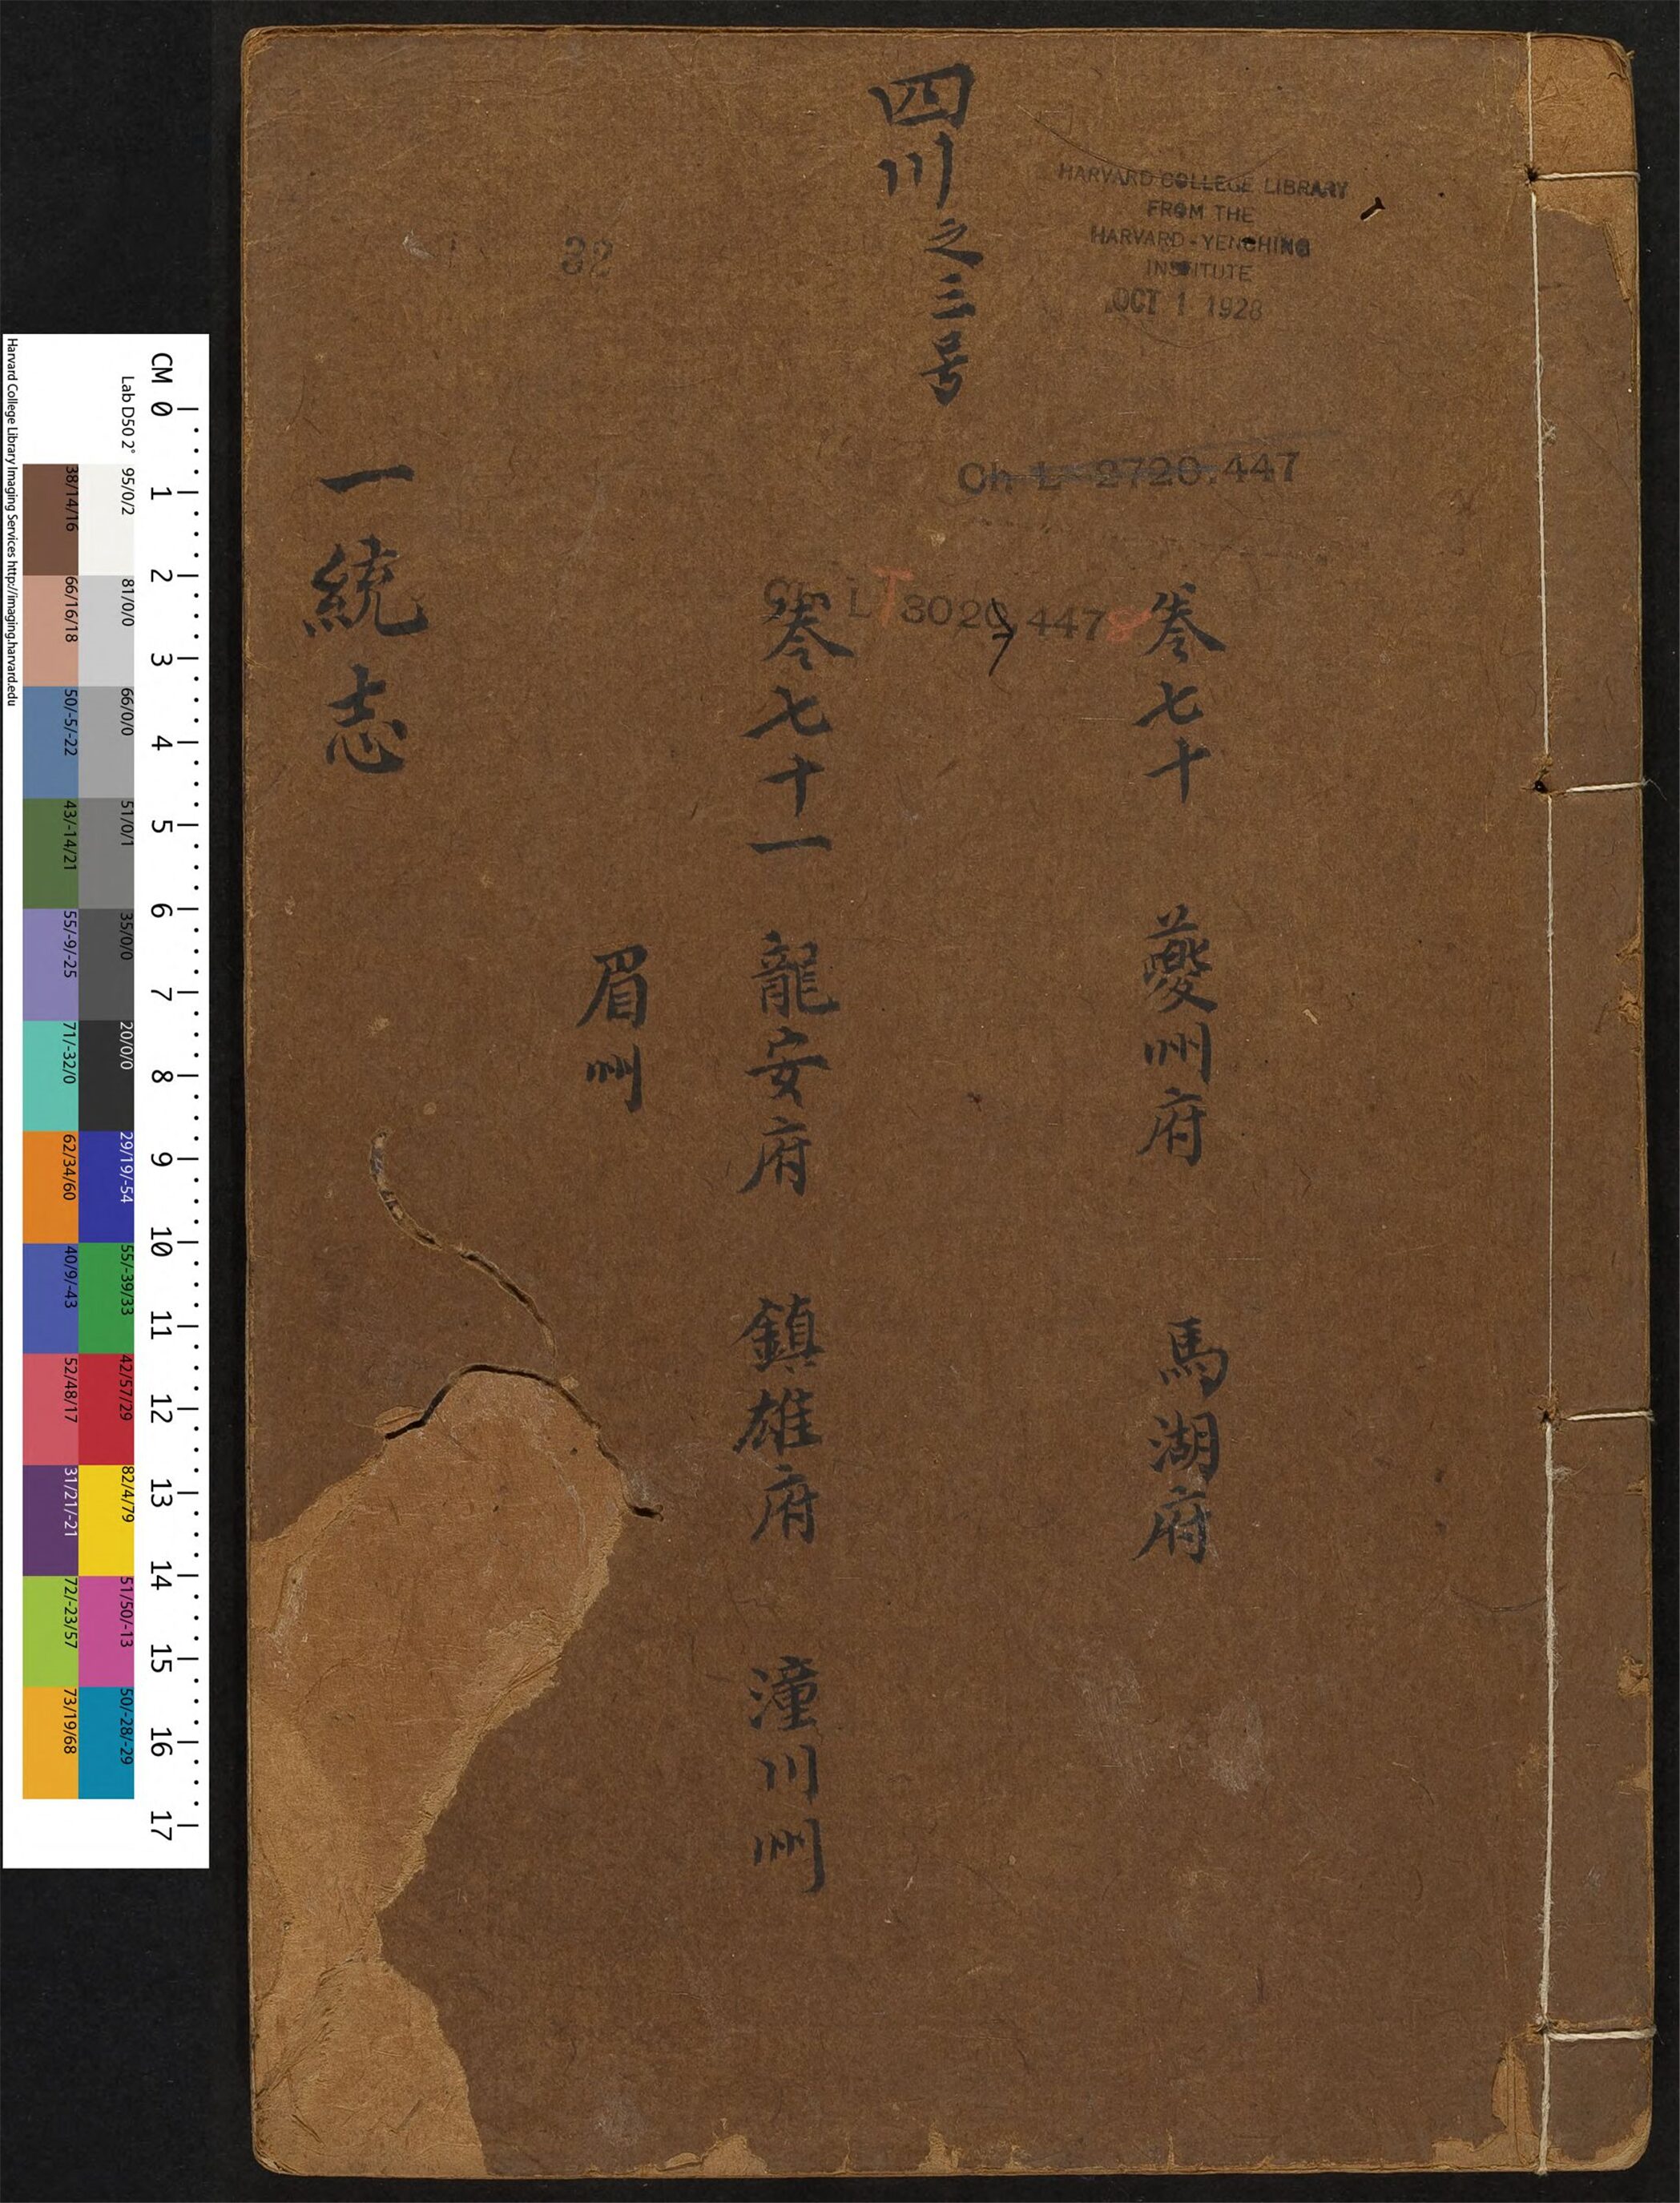 四川之三号
HARVARD COLLEGE LIBRARY
FROM THE
HARVARD-YENCHING
INSTITUTE
OCT 1 1928
32
Ch L 2720.447
Ch LT 3020.4478
卷七十 夔州府 馬湖府
卷七十一 龍安府 鎮雄府 潼川州
眉州
一統志
CM 0 1 2 3 4 5 6 7 8 9 10 11 12 13 14 15 16 17
Lab D50 2° 95/0/2 81/0/0 66/0/0 51/0/1 35/0/0 20/0/0 29/19/-54 55/-39/33 42/57/29 82/4/79 51/50/-13 50/-28/-29
38/14/16 66/16/18 50/-5/-22 43/-14/21 55/-9/-25 71/-32/0 62/34/60 40/9/-43 52/48/17 31/21/-21 72/-23/57 73/19/68
Harvard College Library Imaging Services http://imaging.harvard.edu